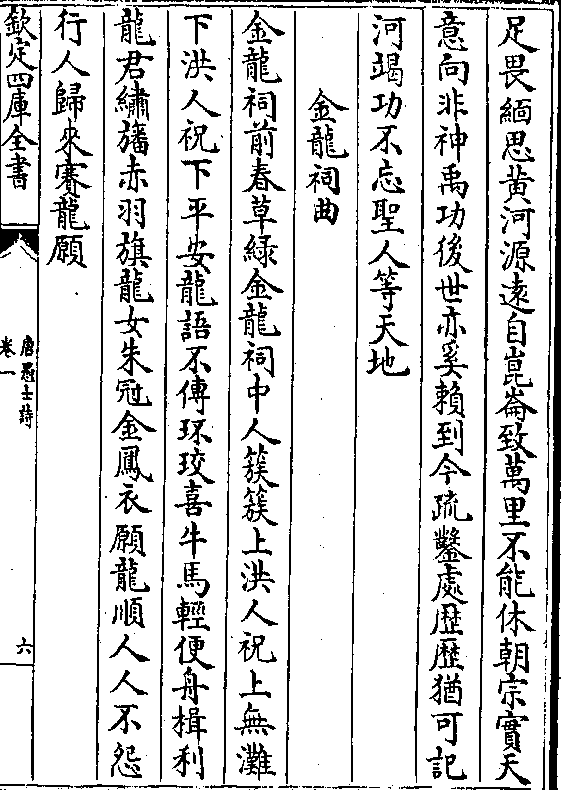 足畏緬思黄河源逺自崑崙致萬里不能休朝宗實天
意向非神禹功後世亦奚賴到今疏鑿處歴歴猶可記
河竭功不忘聖人等天地
金龍祠曲
金龍祠前春草緑金龍祠中人簇簇上洪人祝上無灘
下洪人祝下平安龍語不傳环珓喜牛馬輕便舟揖利
龍君繡旛赤羽旗龍女朱冠金鳳衣願龍順人人不怨
行人歸來賽龍願
欽定四庫全書
唐愚士詩
卷一
六